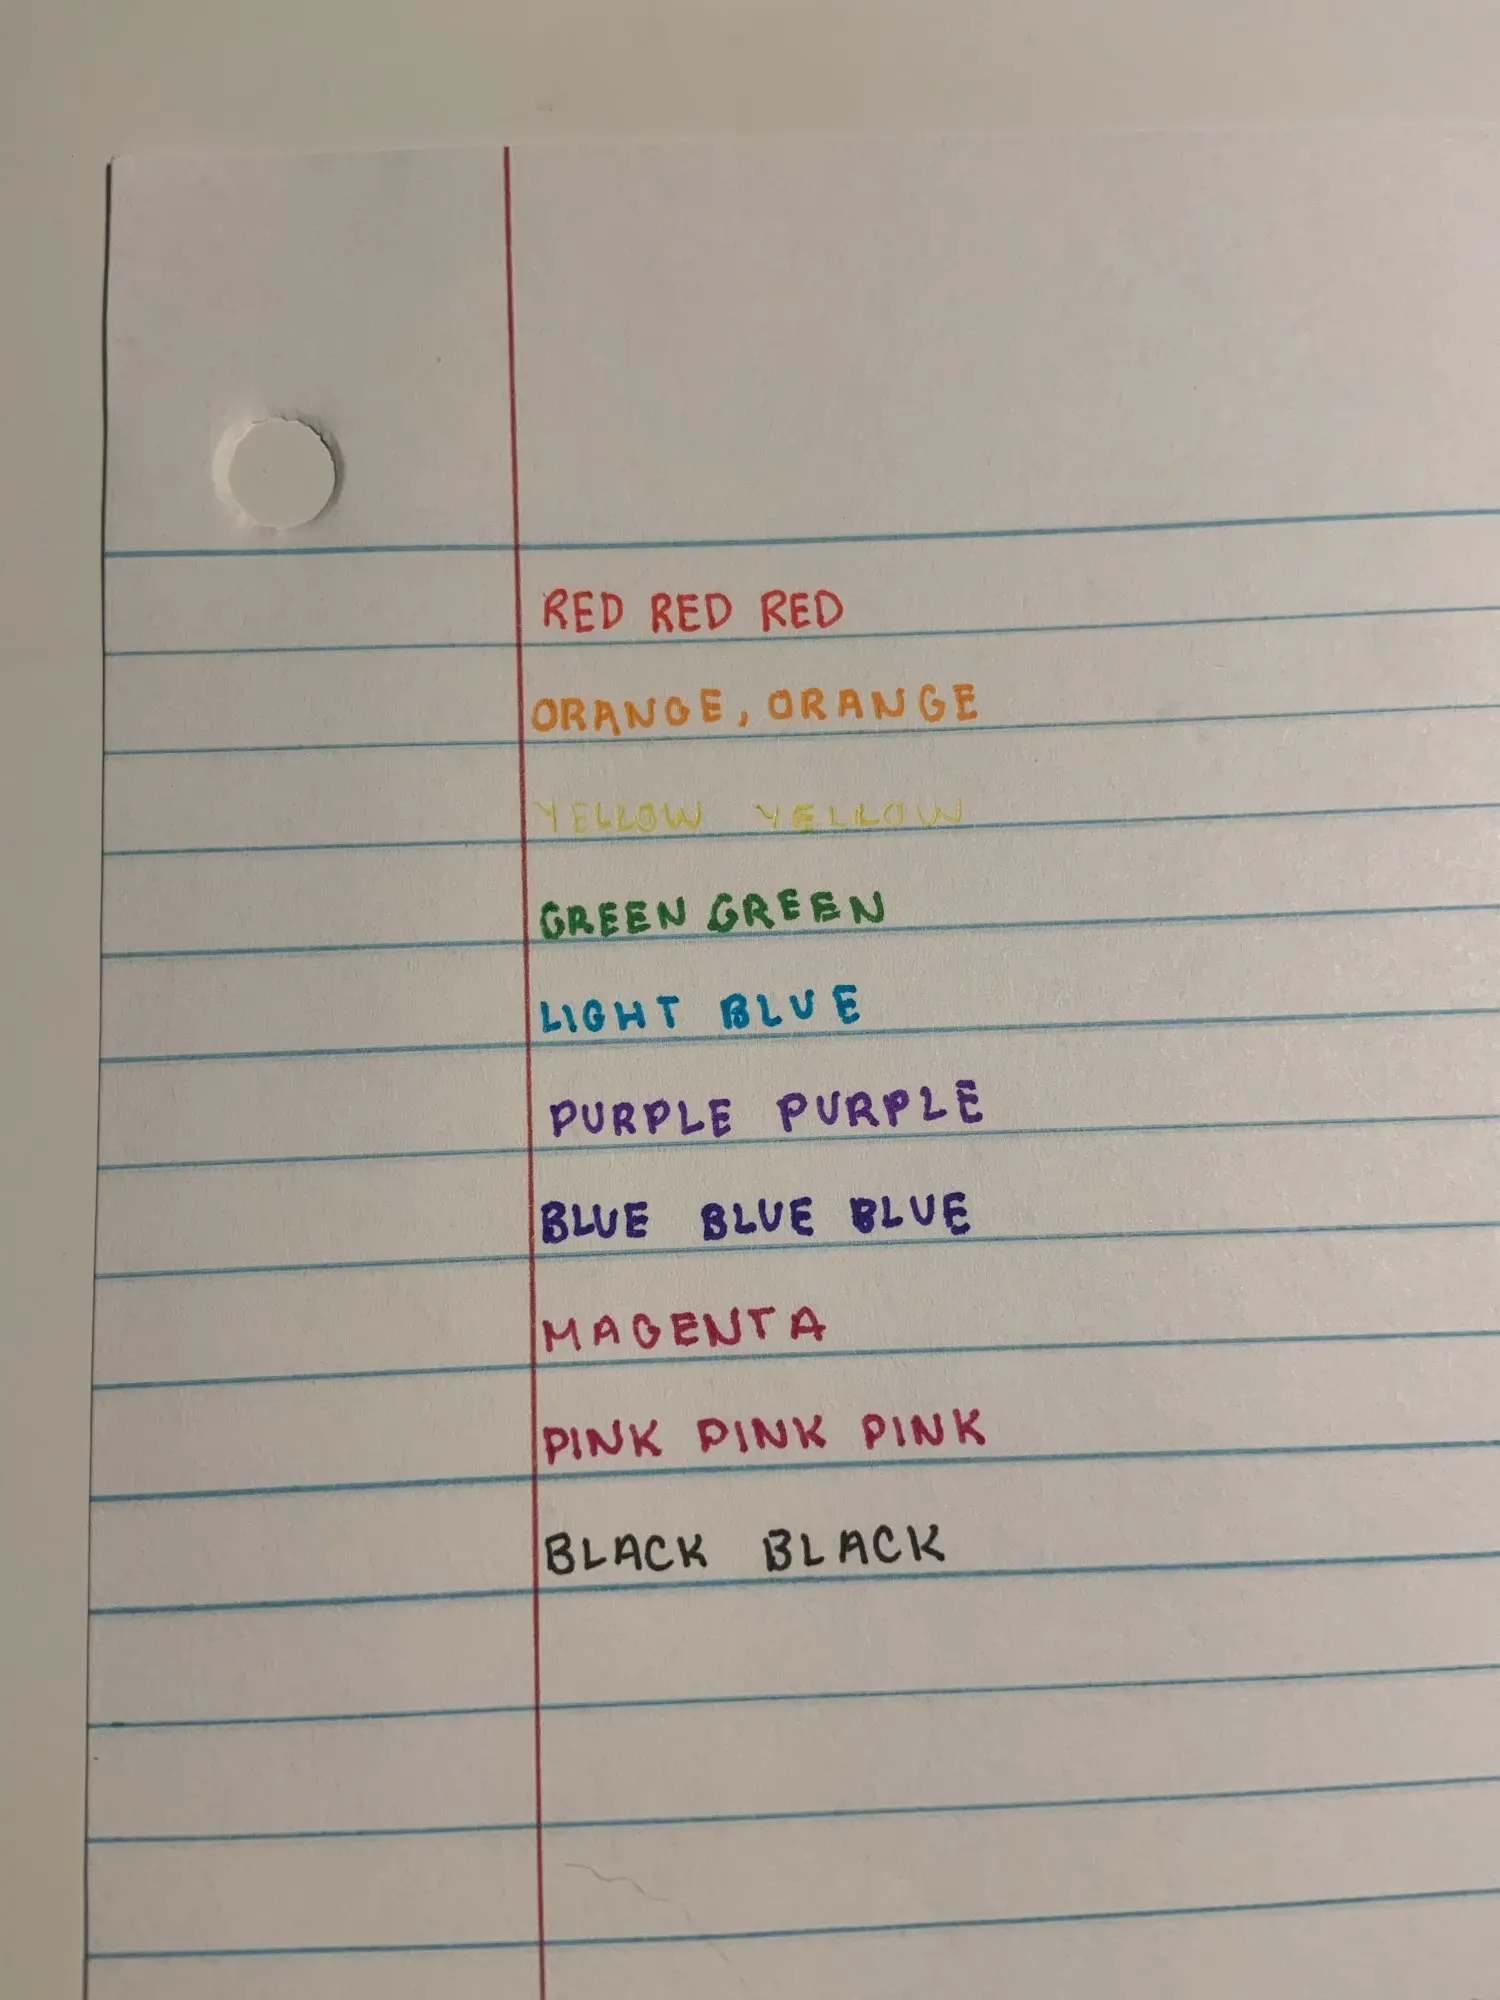 RED RED RED
ORANGE, ORANGE
YELLOW YELLOW
GREEN GREEN
LIGHT BLUE
PURPLE PURPLE
BLUE BLUE BLUE
MAGENTA
PINK PINK PINK
BLACK BLACK